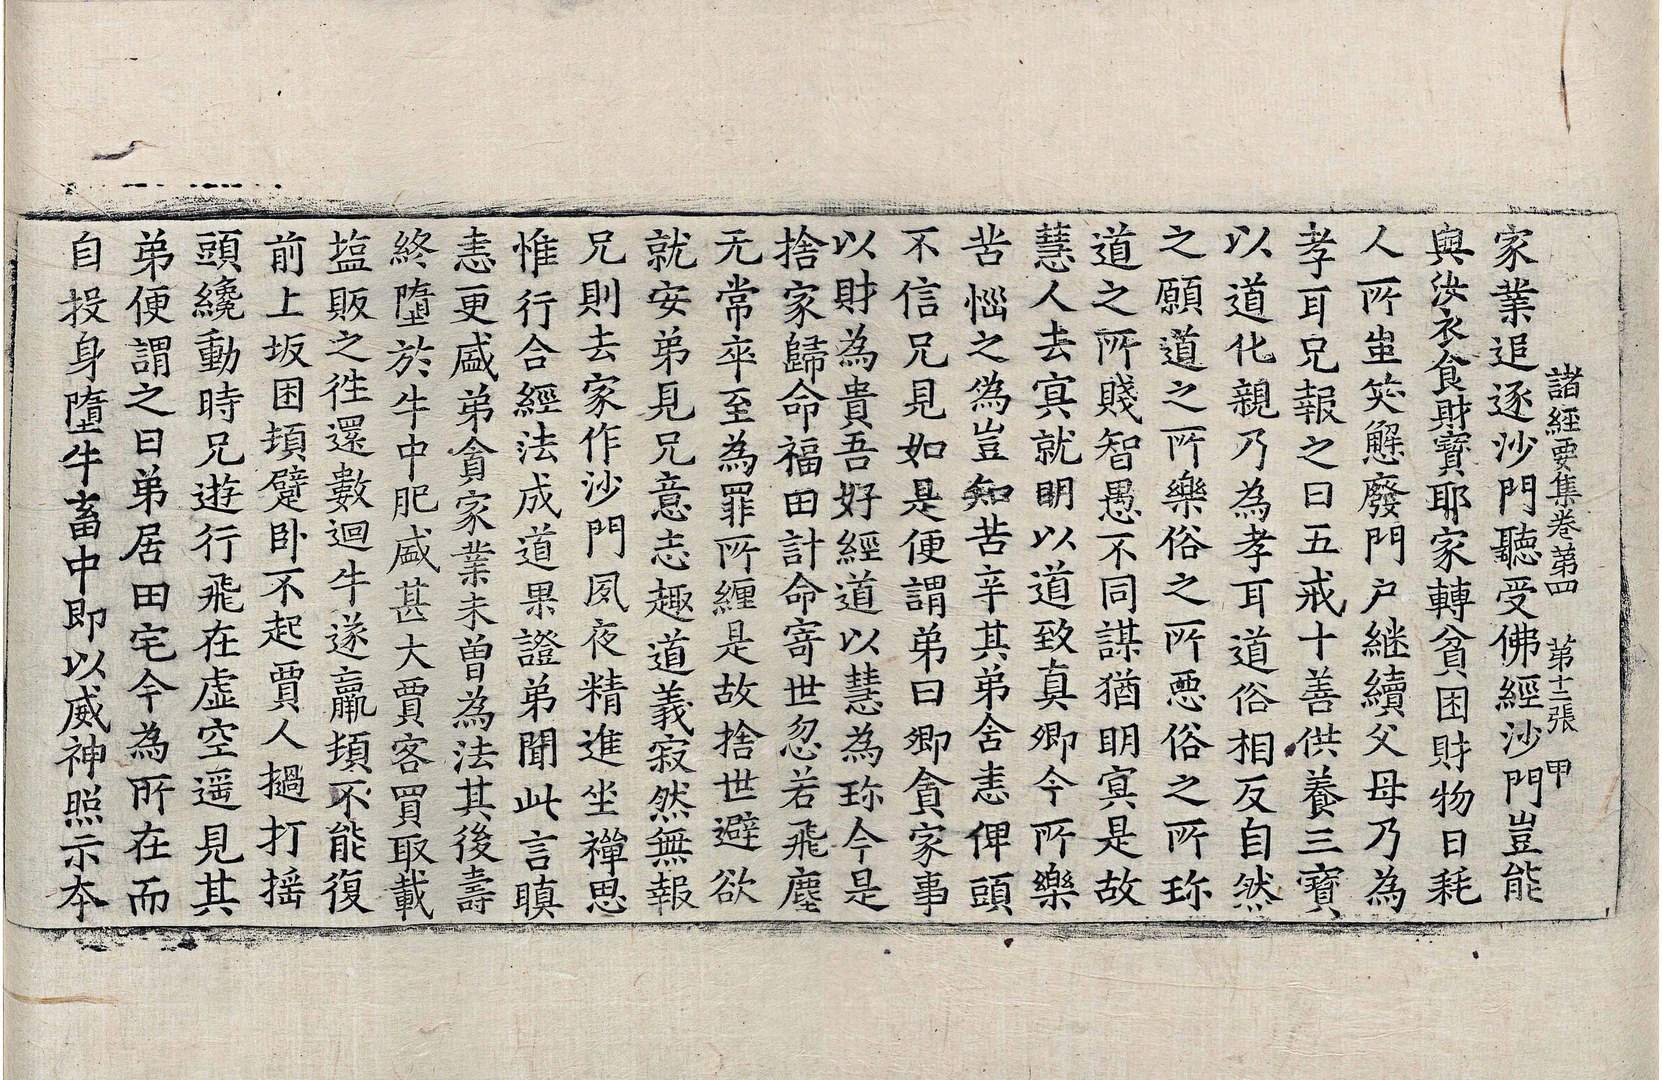 諸經要集卷第四　第十二張　甲
家業追逐沙門聽受佛經沙門豈能
與汝衣食財寶耶家轉貧困財物日耗
人所蚩笑懈廢門戶継續父母乃為
孝耳兄報之曰五戒十善供養三寶
以道化親乃為孝耳道俗相反自然
之願道之所樂俗之所惡俗之所珎
道之所賤智愚不同謀猶明冥是故
慧人去冥就明以道致真卿今所樂
苦惱之為豈知苦辛其弟舍恚俾頭
不信兄見如是便謂弟曰卿貪家事
以財為貴吾好經道以慧為珎今是
捨家歸命福田計命寄世忽若飛塵
无常卒至為罪所纏是故捨世避欲
就安弟見兄意志趣道義寂然無報
兄則去家作沙門夙夜精進坐禪思
惟行合經法成道果證弟聞此言瞋
恚更盛弟貪家業未曾為法其後壽
終墮於牛中肥盛甚大賈客買取載
塩販之徃還數迴牛遂羸頓不能復
前上坂困頓躄卧不起賈人撾打搖
頭纔動時兄遊行飛在虛空遥見其
弟便謂之曰弟居田宅今為所在而
自投身墮牛畜中即以威神照示夲